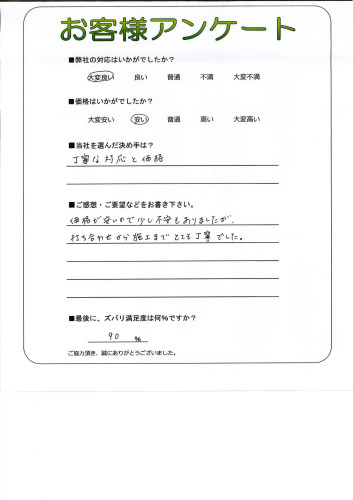 お客様アンケート
■弊社の対応はいかがでしたか？
大変良い 良い 普通 不満 大変不満
■価格はいかがでしたか？
大変安い 安い 普通 高い 大変高い
■当社を選んだ決め手は？
丁寧な対応と価格
■ご感想・ご要望などをお書き下さい。
価格が安いので少し不安もありましたが、
打ち合わせから施工までとても丁寧でした。
■最後に、ズバリ満足度は何％ですか？
90 ％
ご協力頂き、誠にありがとうございました。